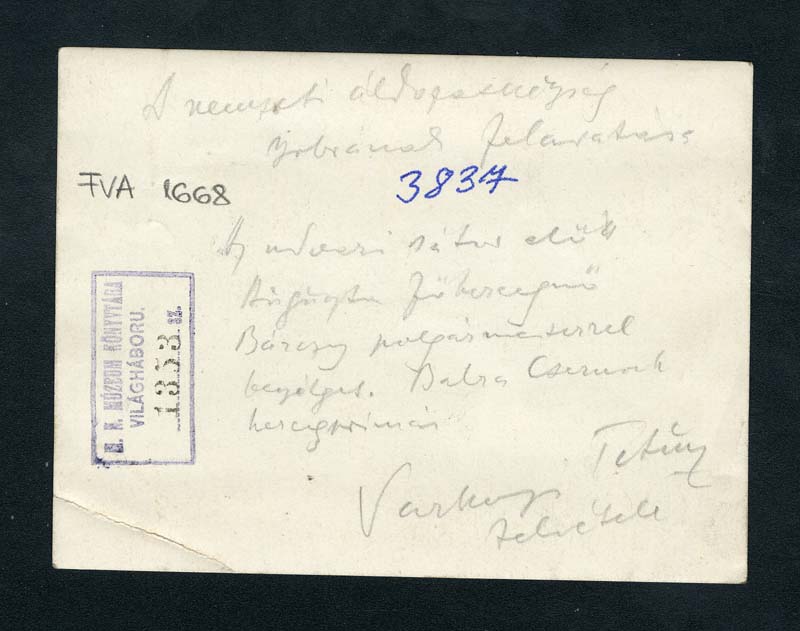 A nemzeti áldozatkészség
szobrának felavatása
FVA 1668
3837
Az udvari sátor előtt
Auguszta főhercegnő
Bárczy polgármesterrel
beszélget. Balra Csernoch
hercegprímás
felvétele
M. N. MÚZEUM KÖNYVTÁRA
VILÁGHÁBORU.
1353 sz.